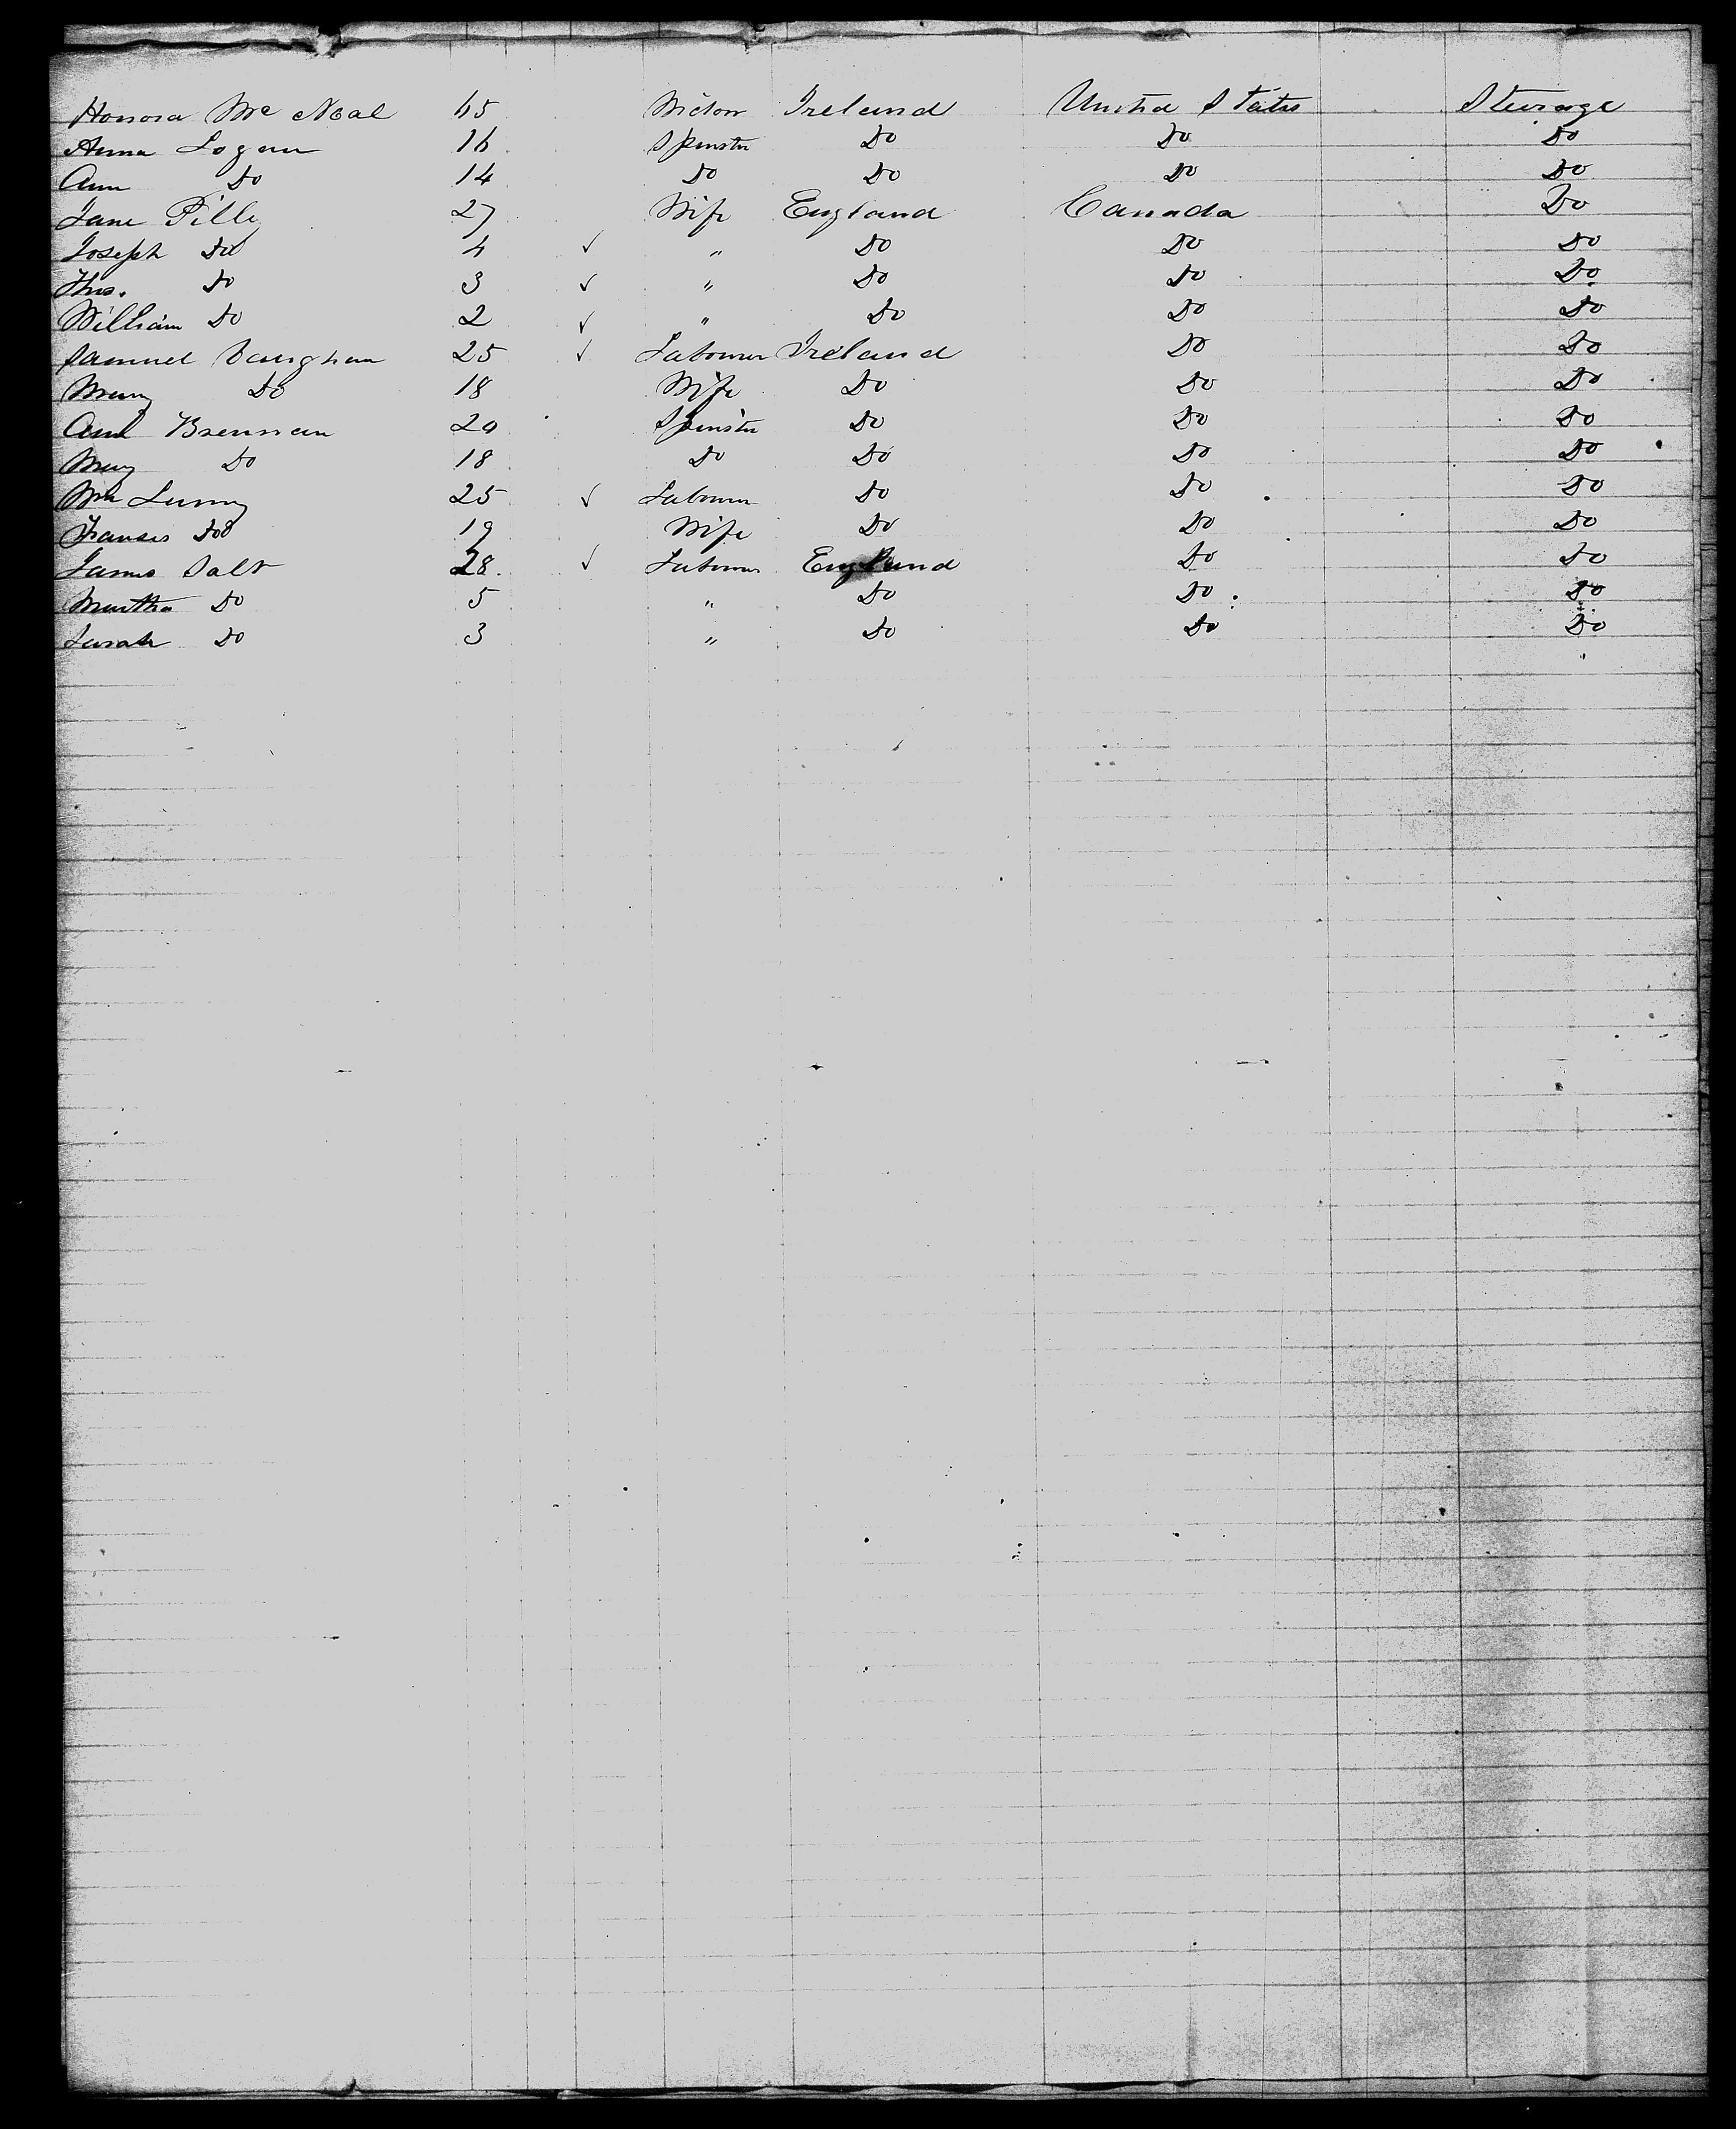 Honora Mc Neal 65 Widow Ireland United States Steerage
Anna Logan 16 Spinster Do Do Do
Ann Do 14 Do Do Do Do
Jane Pilly 27 Wife England Canada Do
Joseph Do 4 ✓ " Do Do Do
Thos. Do 3 ✓ " Do Do Do
William Do 2 ✓ " Do Do Do
Samuel Vaughan 25 ✓ Labourer Ireland Do Do
Mary Do 18 Wife Do Do Do
Ann Brennan 20 Spinster Do Do Do
Mary Do 18 Do Do Do Do
Wm Lunny 25 ✓ Labourer Do Do Do
Frances Do 19 Wife Do Do Do
James Salt 28. ✓ Labourer England Do Do
Martha Do 5 " Do Do Do
Sarah Do 3 " Do Do Do